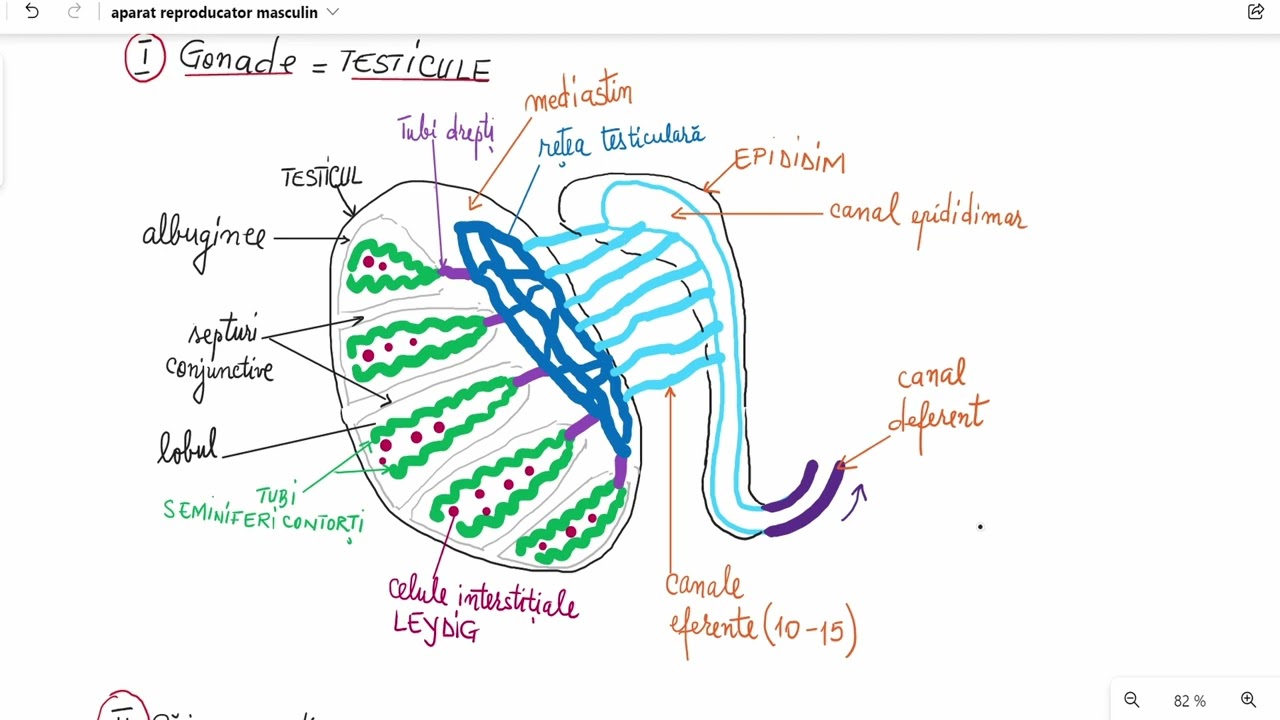 aparat reproducator masculin
I Gonade = TESTICULE
mediastin
Tubi drepți
rețea testiculară
EPIDIDIM
TESTICUL
canal epididimar
albuginee
septuri
conjunctive
canal
deferent
lobul
TUBI
SEMINIFERI CONTORȚI
celule interstițiale
LEYDIG
canale
eferente (10-15)
II
82 %